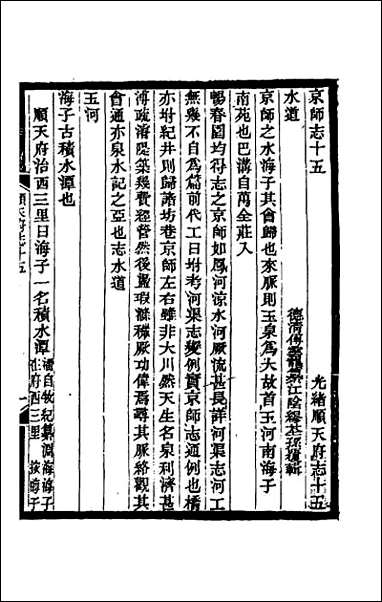 京師志十五 光緒順天府志十五
德清傅雲龍纂 江陰繆荃孫覆輯
水道
京師之水海子其會歸也來脈則玉泉爲大故首玉河南海子
南苑也巴溝自萬全莊入
暢春園均得志之京師如鳳河涼水河厥流甚長詳河渠志河工
無幾不自爲篇前代工日坿考河渠志變例實京師志通例也橋
亦坿紀井則歸諸坊巷京師左右雖非大川然天生名泉利濟甚
溥疏濬隄築幾費經營然後爲瑕滌穢厥功偉焉尋其脈絡觀其
會通亦泉水記之亞也志水道
玉河
海子古積水潭也
順天府治西三里日海子一名積水潭 潘自牧紀纂淵海海子在府西三里 按海子
順天府志十五